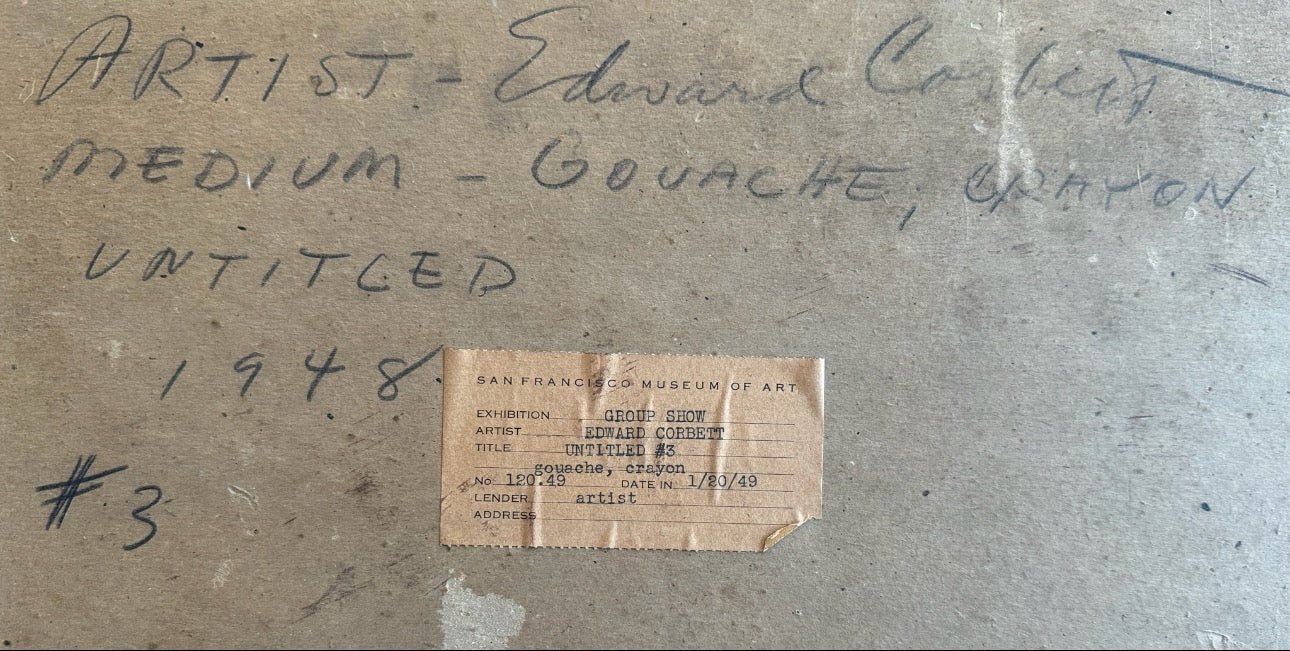 ARTIST - Edward Corbett
MEDIUM - GOUACHE, CRAYON
UNTITLED
1948
#3
SAN FRANCISCO MUSEUM OF ART
EXHIBITION GROUP SHOW
ARTIST EDWARD CORBETT
TITLE UNTITLED #3
gouache, crayon
No. 120.49 DATE IN 1/20/49
LENDER artist
ADDRESS